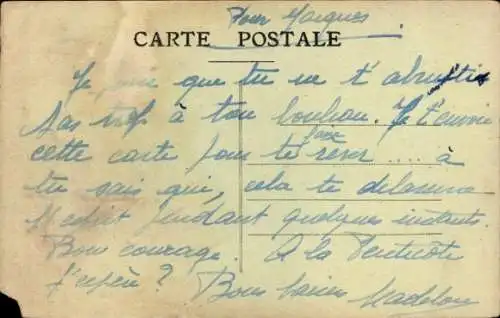 Pour Jacques
CARTE POSTALE
Je pense que tu ne t'abrutis
pas trop à ton bouhou. Je t'envoie
cette carte pour te faire rever .... à
tu sais qui, cela te delassera
pendant quelques instants.
Bon courage. A la Pentecôte
j'espère ? Bons baisers Madelon